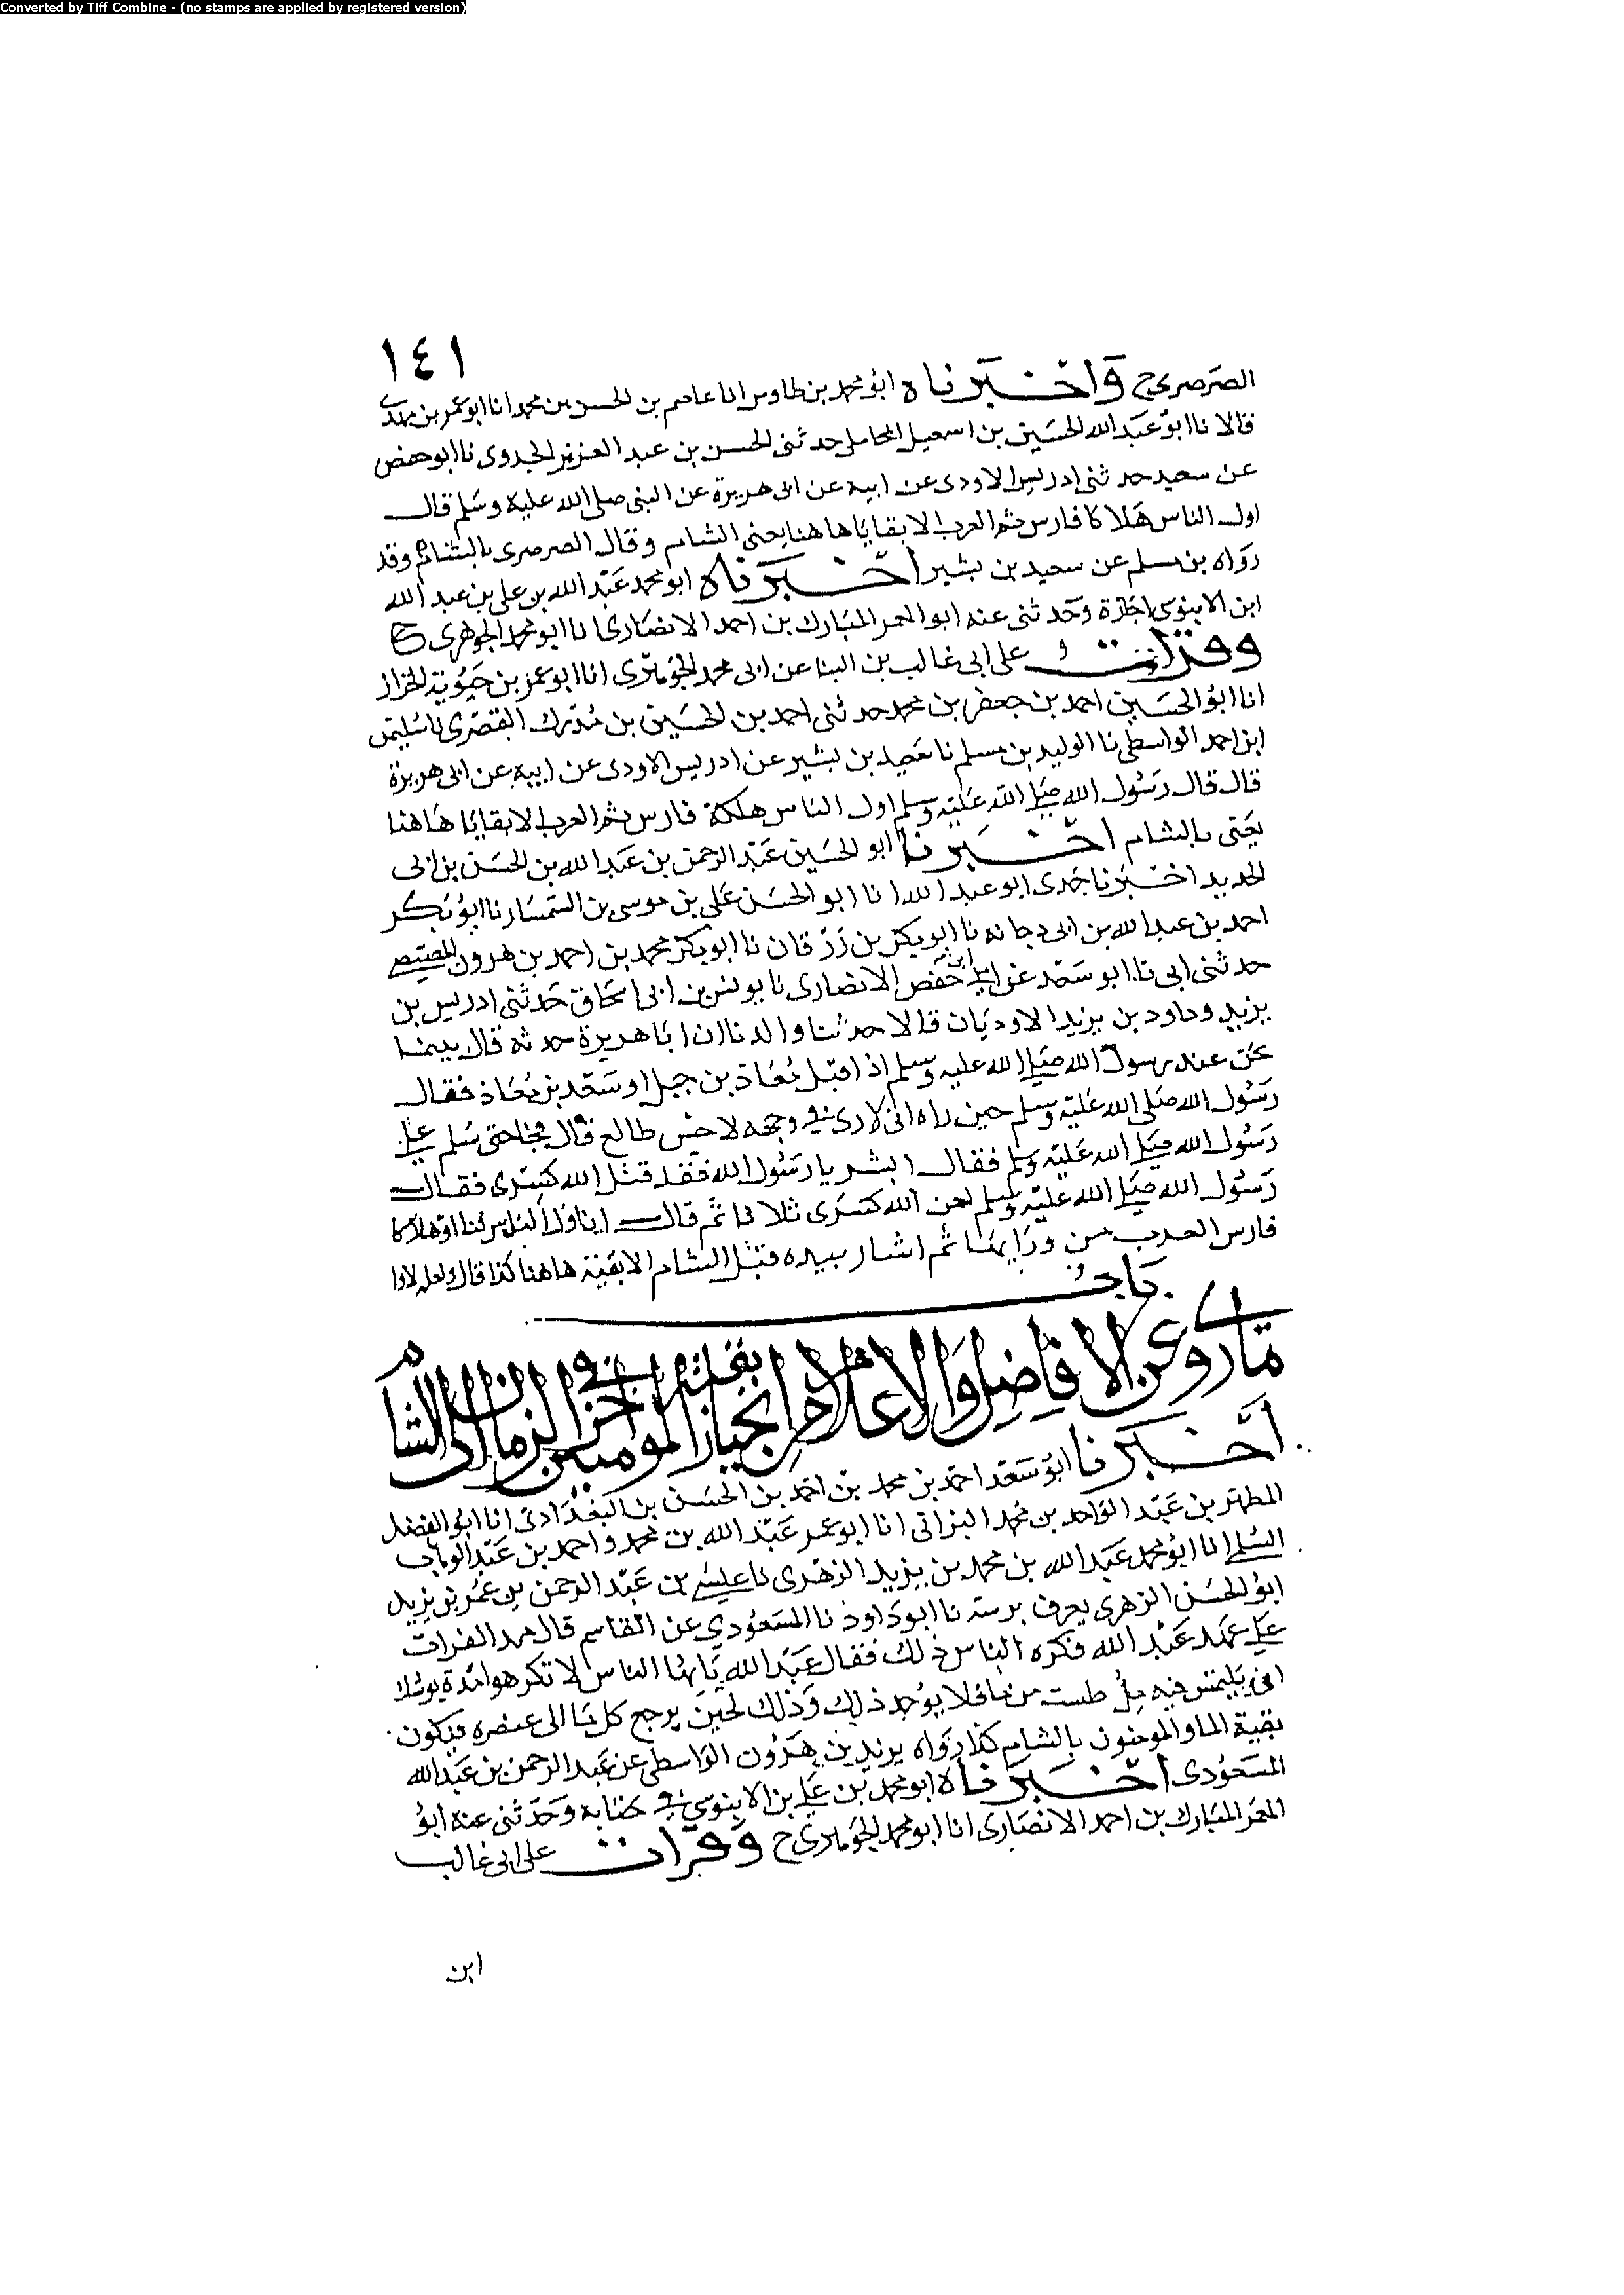 Converted by Tiff Combine - (no stamps are applied by registered version)
١٤١
الصرصري ح وَاخْبَرناه ابو محمد بن طاوس انا عاصم بن الحسن بن محمد انا ابو عمر بن مهدي
قالا نا ابو عَبَد الله الحسَين بن اسمعيل المحاملي حدثنى الحسن بن عبد العزيز الجروى نا ابو حفص
عن سعيد حدثنى إدريس الاودى عن ابيه عن ابى هريرة عن النبى صلى الله علية وسَلم قال
اول الناس هَلاكا فارس ثم العرب الا بقايَا ها هنا يعنى الشام وقال الصرصرى بالشام وقد
روَاه بن مسلم عن سعيد بن بشير أخْبَرَناه ابو محمد عَبْد الله بن على بن عبد الله
ابن الابنوسى اجَازة وحَدثنى عنه ابو المعمر المبَارك بن احمد الانصَارى انا ابو محمد الجوهرى ح
وقرَات على ابى غالب بن البنا عن ابى محمد الجوهَرى انا ابو عمر بن حَيوية الخزاز
انا ابوُ الحسَين احمد بن جعفر بن محمد حدثنى احمد بن الحسَين بن مُدرك القصرى نا سُليمن
ابن احمد الواسطى نا الوليد بن مسلم نا سَعيد بن بشير عن ادريس الاودى عن ابيه عن ابى هريرة
قال قال رَسُول الله صَلى الله عَليَه وسلم اول الناس هلكة فارس ثم العرب الا بقايَا هَاهنا
يعَنى بالشام اخْبَرنا ابو الحسَين عَبْد الرحمن بن عَبَد الله بن الحسَن بن ابى
الحديد اخبَرنا جَدى ابو عبد الله انا ابو الحسَن عَلى بن موسى بن السمسَار نا ابو بَكر
احمد بن عبد الله بن ابى دجانه نا ابو بكر بن زَرْقان نا ابو بكر محمد بن احمد بن هرون المصيصى
حدثنى ابى نا ابو سَعْد عن ابى حَفص الانصارى نا يونس بن ابى اسحَاق حَدثنى ادريس بن
يزيد وداود بن يزيد الاوديَان قالا حدثنا والدنا ان ابَا هريرة حدثه قال بينما
نحن عند رسول الله صَلى الله عليه وَسلم اذ اقبَل مُعَاذ بن جبل او سَعْد بن مُعَاذ فقال
رَسُول الله صَلى الله عَليَه وَسلم حين راه انى لارى فى وجهه لاخس طالع قال فجَا حتى سَلم على
رَسُول الله صَلى الله عَليَه وَسلم فقال ابشر يا رَسُول الله فقد قتل الله كسْرى فقال
رَسُول الله صَلى الله عليَه وَسلم لعن الله كسَرى ثلاثا ثم قال ان اول الناس فنا او هلاكا
فارس العرب من ورَايهَا ثم اشار بيده قبَل الشام الا بقيَة هاهنا كذا قال ولعله لاوا
بَابُ
مَا روي عَن الافَاضِل وَالاعلام من انحيَاز بَقيَّة المومنين فى اخر الزمَان الى الشَّام
أخْبَرنا ابوُ سَعَد احمَد بن محمد بن احمَد بن الحسَن بن البَغدَادى انا ابو الفضل
المطهر بن عَبَد الوَاحد بن محمد البزانى انا ابو عمر عَبْد الله بن محمد واحمد بن عَبْد الوهاب
السُلمى انا ابوُ محمد عَبَد الله بن محمد بن يزيد الزهرى نا عيسى بن عَبْد الرحمن بن عمر بن يزيد
ابوُ الحسَن الزهرى يعرف برسته نا ابو دَاود نا المسَعُودي عن القاسم قال مد الفرات
عَلى عهَد عَبْد الله فكره الناس ذلك فقال عَبْد الله يَا ايهَا الناس لا تكرهوا مَدة يوشك
ان يَلتمس فيه ملُ طست من مَا فلا يوُجد ذلك وَذلك لحين يرجع كل مَا الى عنصره فيكون
بقية الما والمومنون بالشام كذا رَوَاه يزيد بن هَرُون الوَاسطى عن عَبَد الرحمن بن عَبَد الله
المسَعُودى اخْبَرَناه ابو محمد بن عَلى بن الابنوسي فى كتابة وَحَدثنى عنه ابوُ
المعمَر المبَارك بن احمد الانصَارى انا ابو محمد الجَوهرى ح وَقرَات على ابى غالب
ابن